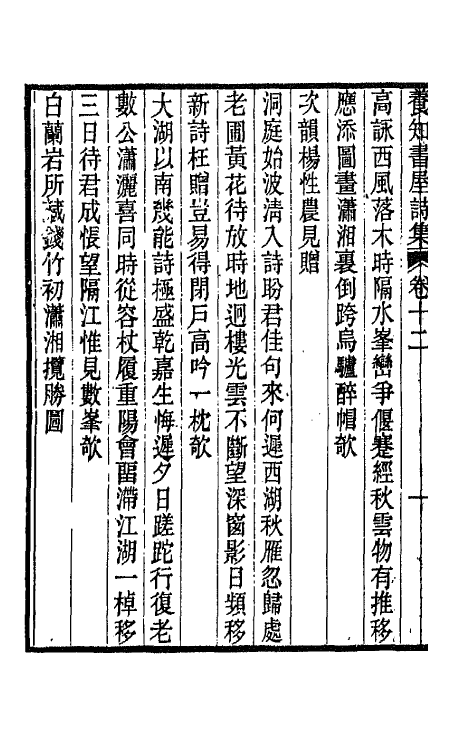 養知書屋詩集 卷十二 十
高詠西風落木時隔水峯巒爭偃蹇經秋雲物有推移
應添圖畫瀟湘裏倒跨烏驢醉帽欹
次韻楊性農見贈
洞庭始波淸入詩盼君佳句來何遲西湖秋雁忽歸處
老圃黃花待放時地迥樓光雲不斷望深窗影日頻移
新詩枉贈豈易得閉戶高吟一枕欹
大湖以南幾能詩極盛乾嘉生悔遲夕日蹉跎行復老
數公瀟灑喜同時從容杖履重陽會畱滯江湖一棹移
三日待君成悵望隔江惟見數峯欹
白蘭岩所藏錢竹初瀟湘攬勝圖